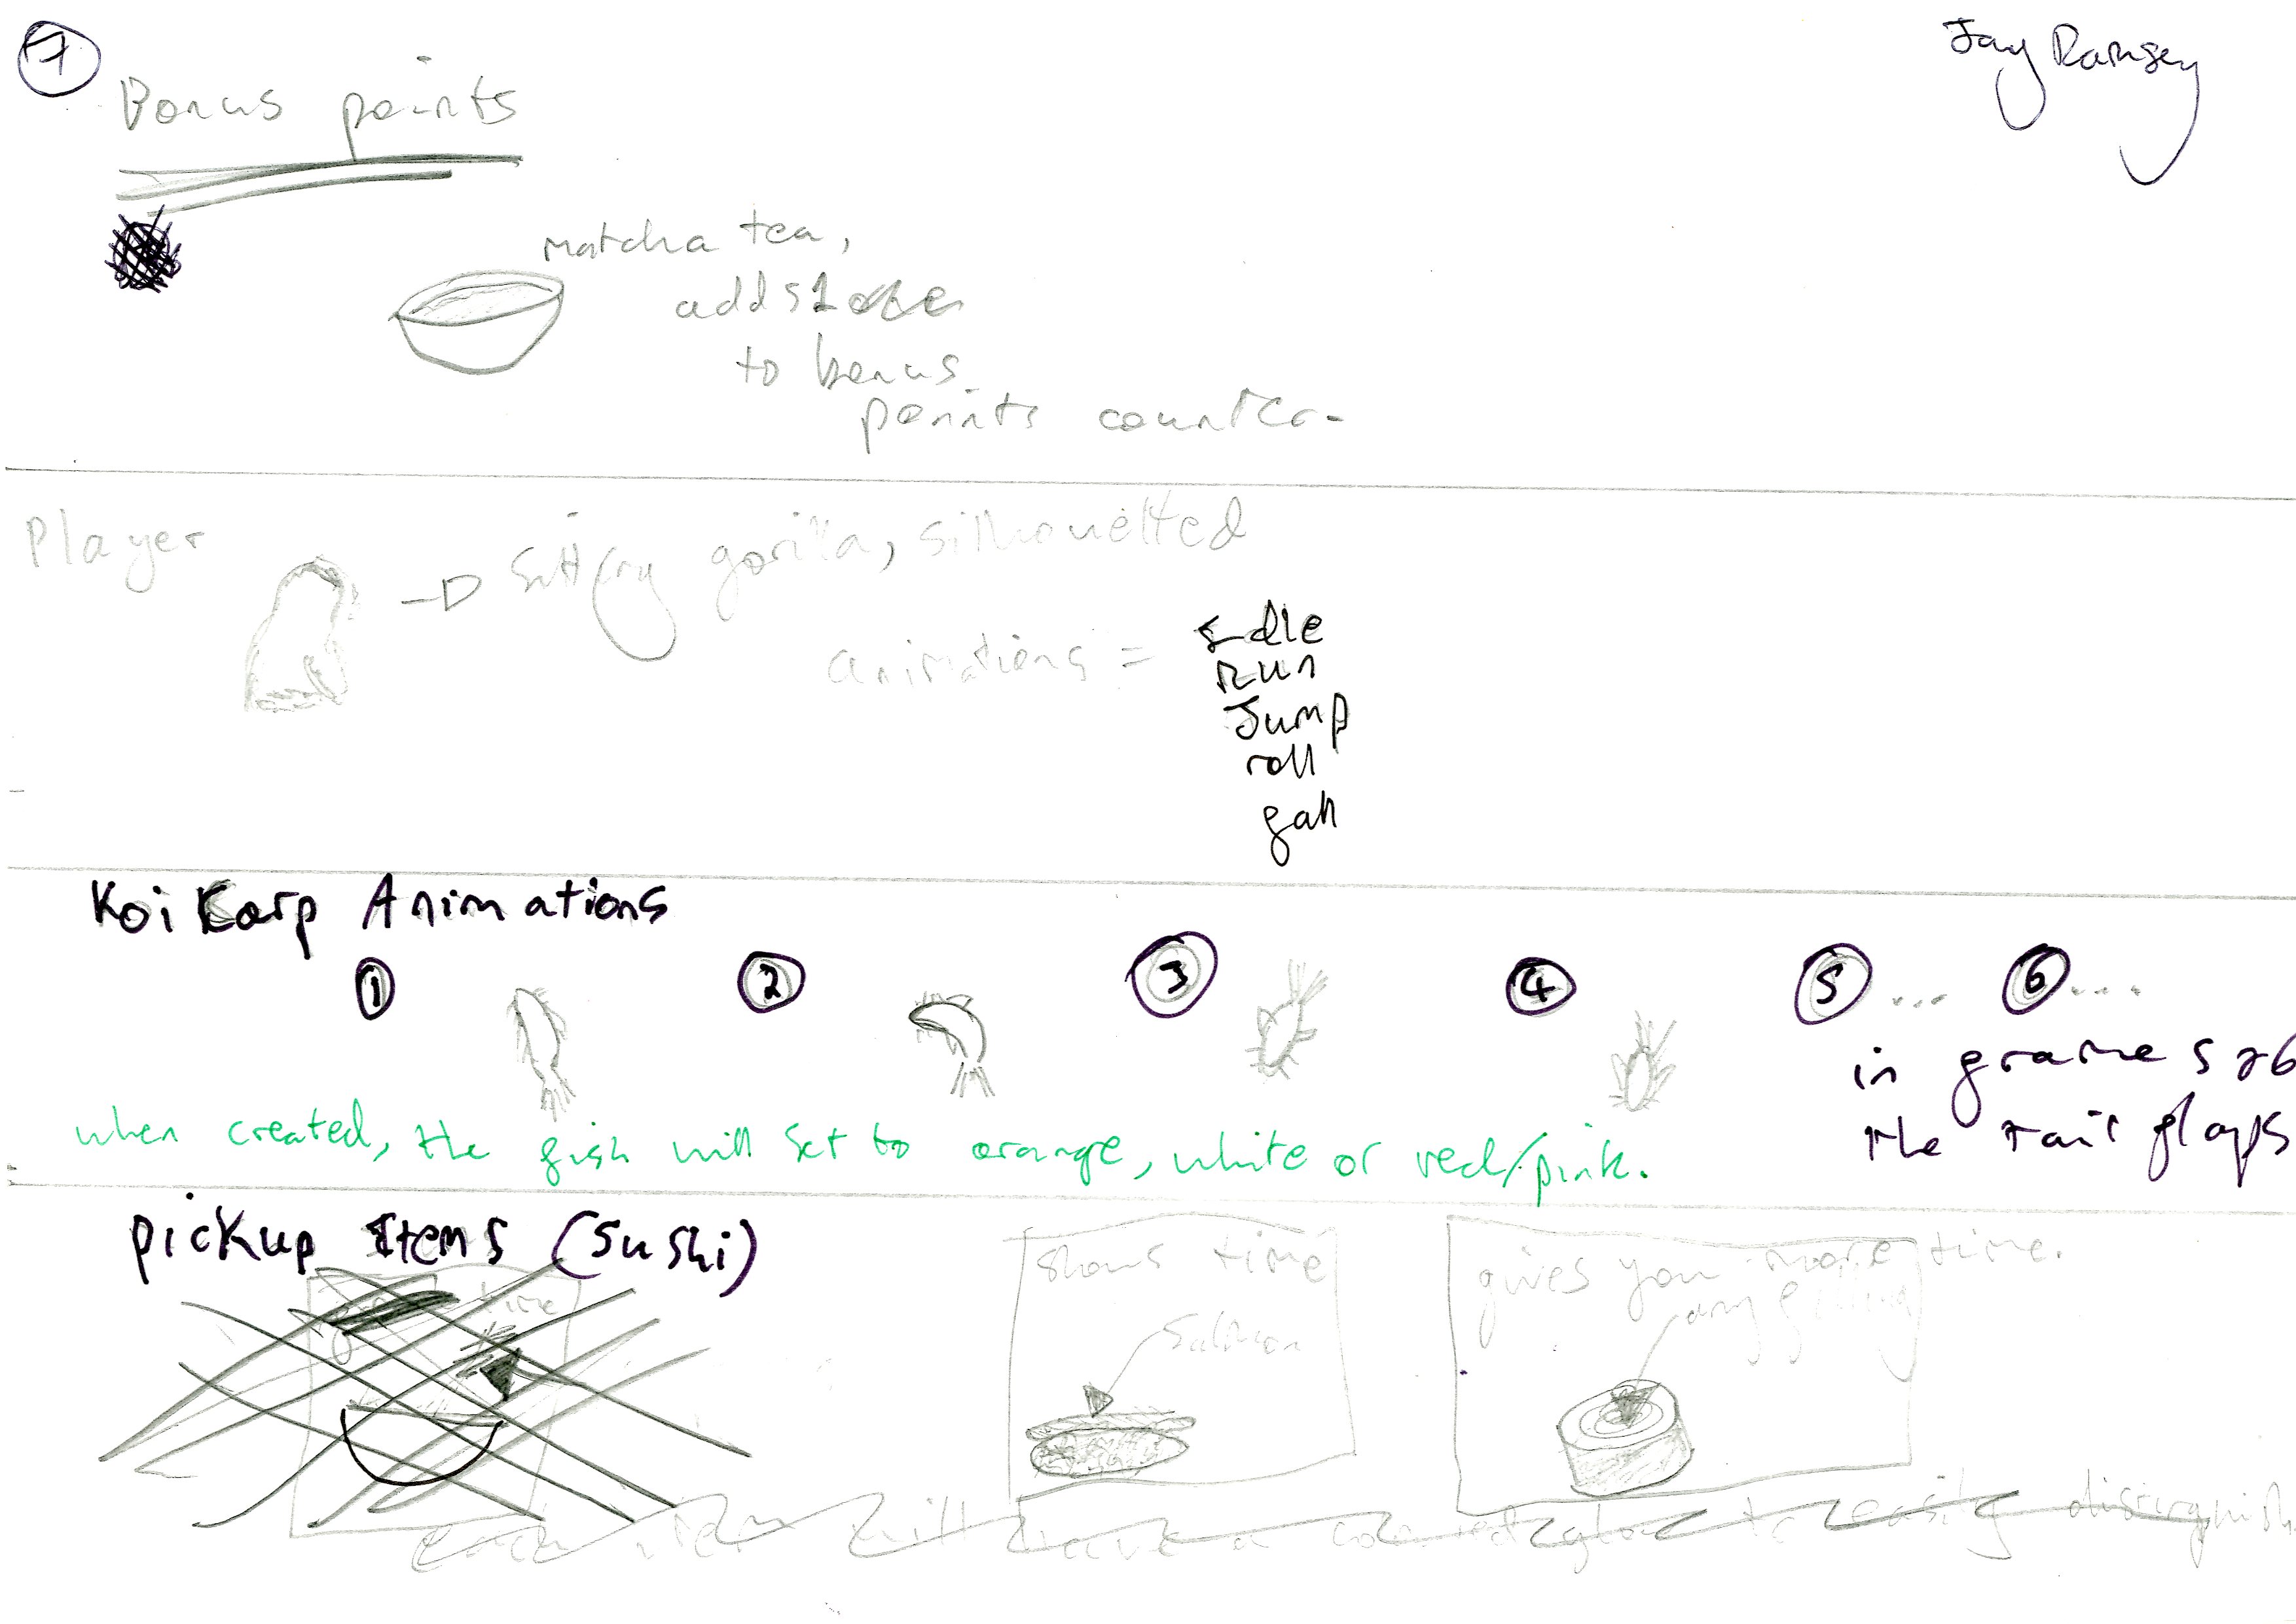 7
Jay Ramsey
Bonus points
matcha tea,
adds 1
to bonus
points counter.
Player
Sitting gorilla, silhouetted
animations =
Idle
Run
Jump
roll
fall
Koi Karp Animations
1 2 3 4 5 ... 6 ...
in frame 5 & 6
the tail flaps
when created, the fish will set to orange, white or red/pink.
pickup Items (Sushi)
time
slows time
Salmon
gives you more time.
any filling
each item will have a coloured glow to easily distinguish